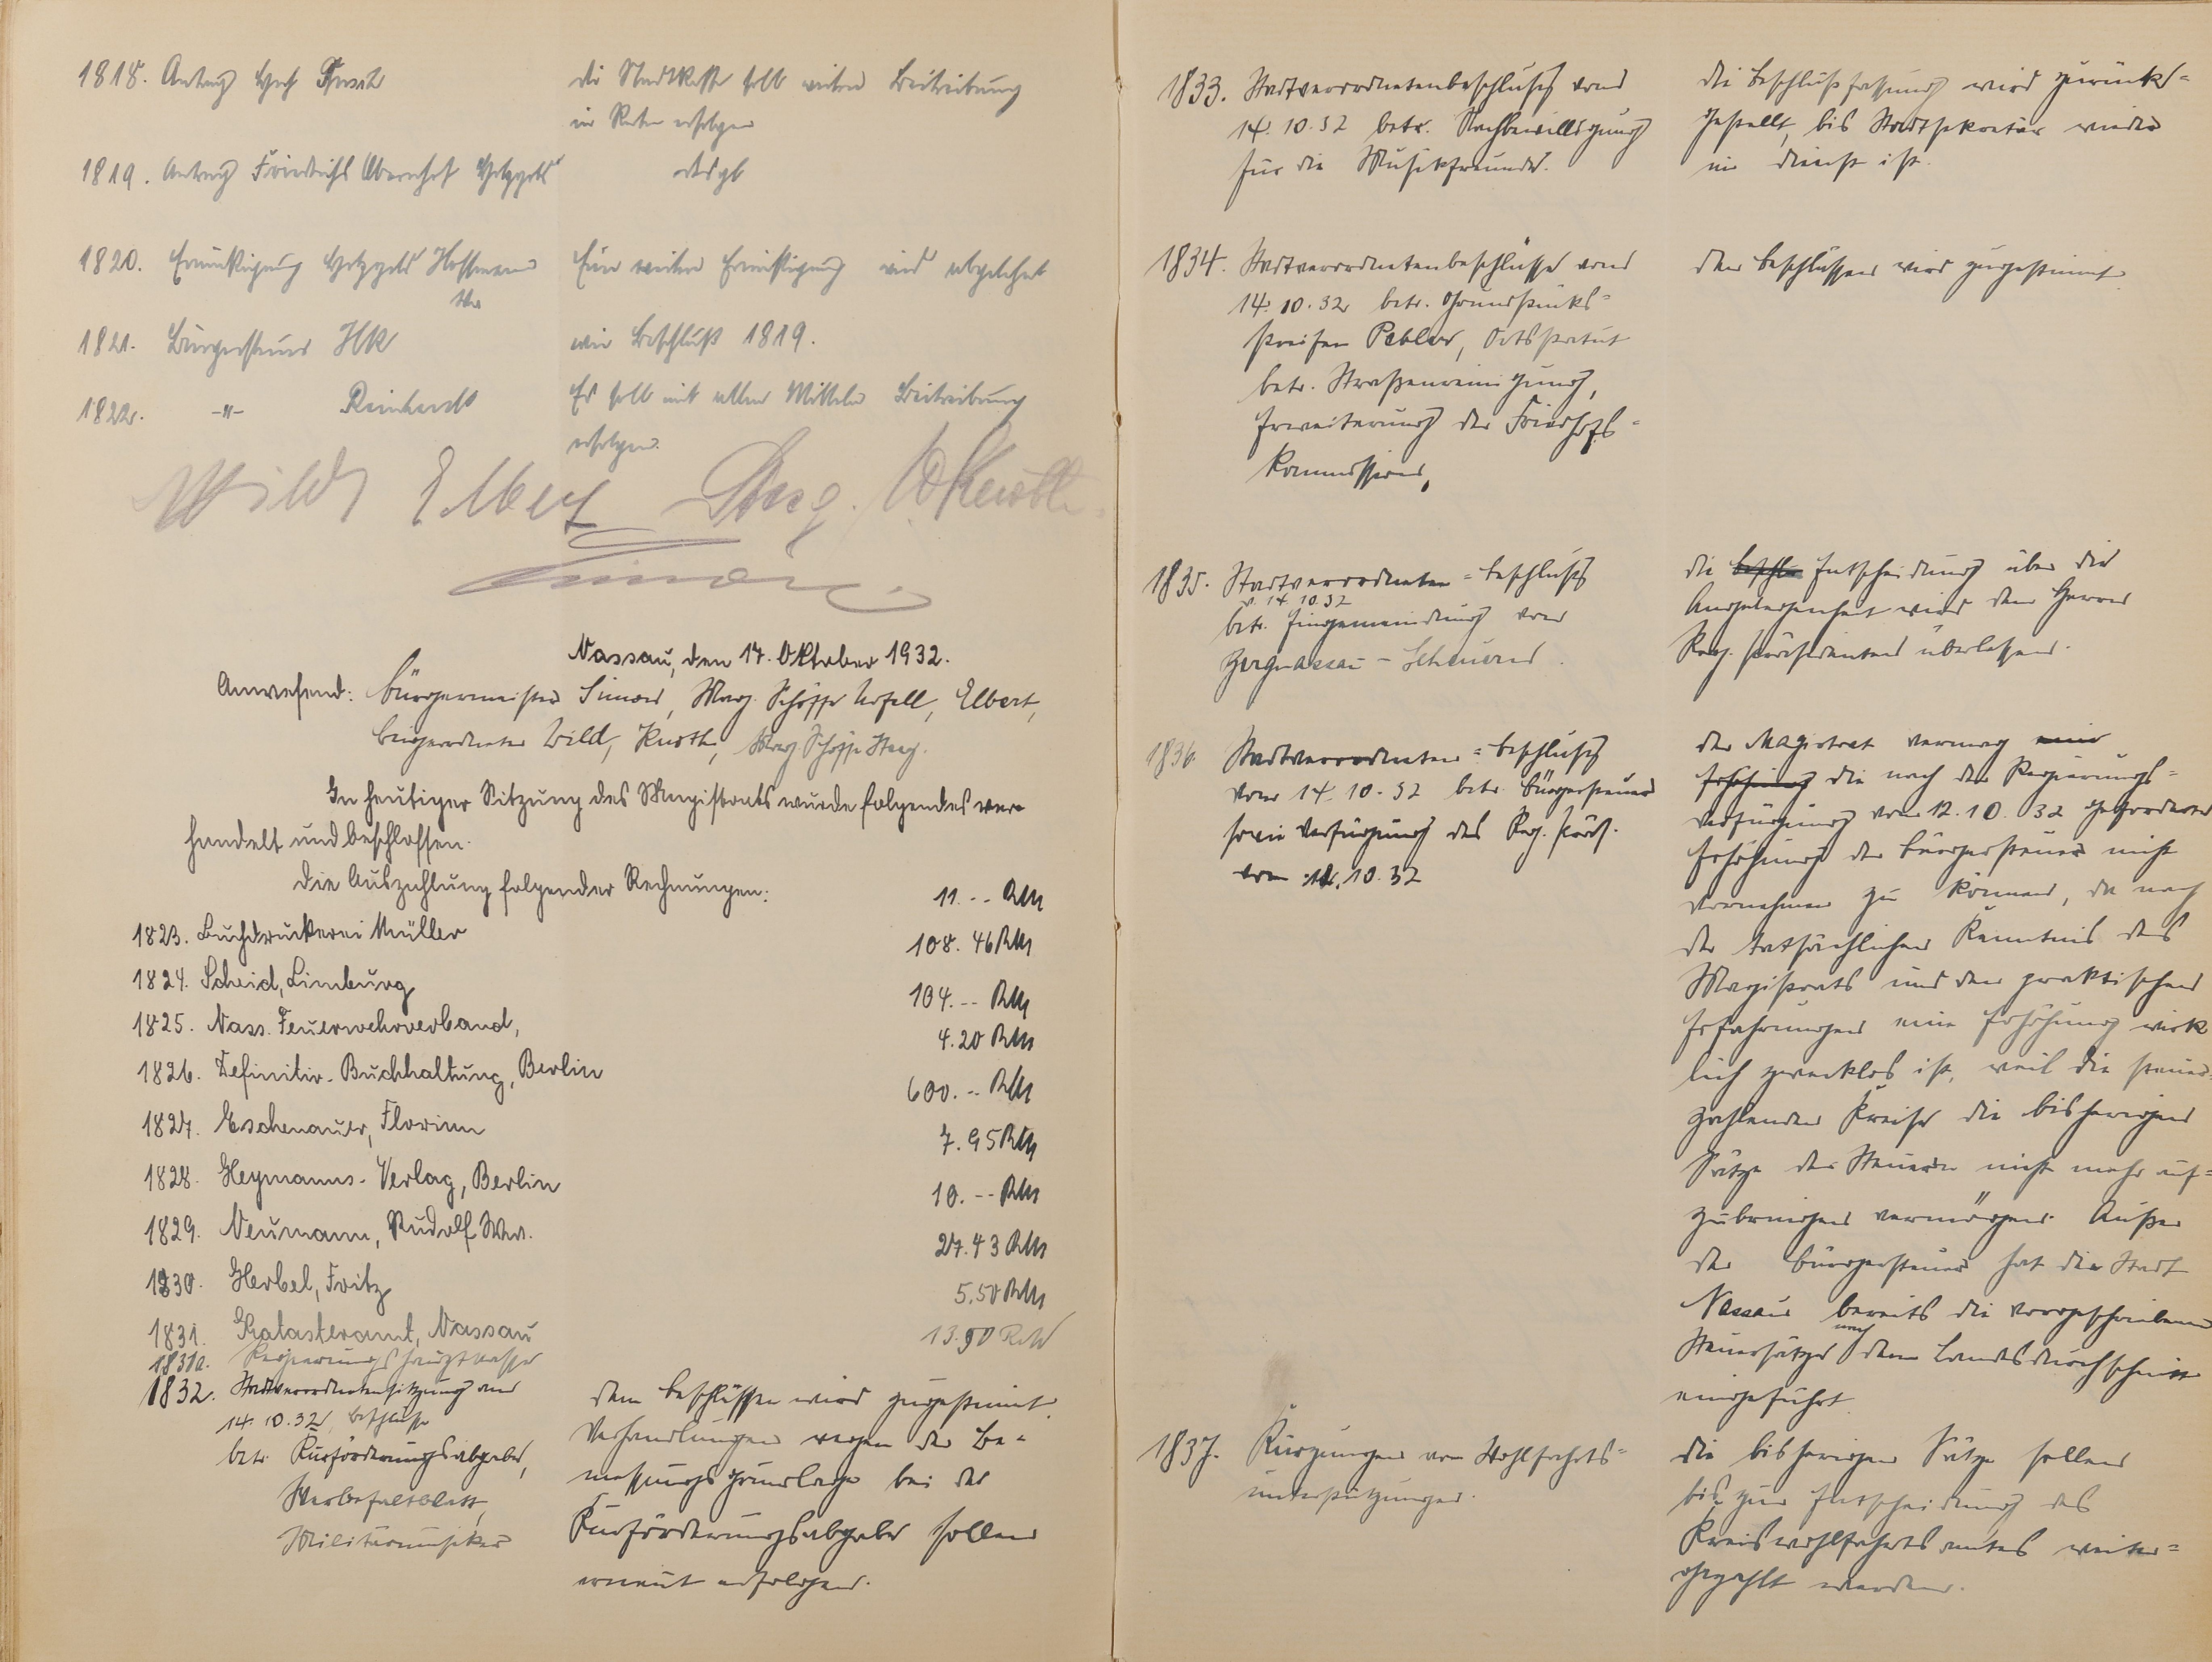 1818. Antrag
die Stadtkasse soll weitere Beitreibung
in Raten erfolgen
1819. Antrag Friedrichs Obernhof Holzgeld
desgl
1820. Ermäßigung Holzgeld Hoffmann
Eine weitere Ermäßigung wird abgelehnt
1821. Bürgersteuer
wie Beschluß 1819.
1822. -"- Reinhardt
Es soll mit allen Mitteln Beitreibung
erfolgen.
Wild Elbert
Simon
Nassau, den 17. Oktober 1932.
Anwesend: Bürgermeister Simon, Mag. Schöffe Unfell, Elbert,
Beigeordneter Wild, Knoth, Mag. Schöffe Haag.
In heutiger Sitzung des Magistrats wurde folgendes ver-
handelt und beschlossen.
Die Auszahlung folgender Rechnungen:
1823. Buchdruckerei Müller 11.-- RM
1824. Scheid, Limburg 108.46 RM
1825. Nass. Feuerwehrverband, 104.-- RM
1826. Definitiv-Buchhaltung, Berlin 4.20 RM
1827. Eschenauer, Florian 600.-- RM
1828. Heymanns-Verlag, Berlin 7.95 RM
1829. Neumann, Rudolf Ww. 10.-- RM
1830. Herbel, Fritz 27.43 RM
1831. Katasteramt, Nassau 5.50 RM
1831a. Regierungshauptkasse 13.90 RM
1832. Stadtverordnetensitzung vom
14.10.32, Beschlüsse
betr. Kurförderungsabgabe,
Werbefaltblatt,
Militärmusiker
den Beschlüssen wird zugestimmt.
Verhandlungen wegen der Be-
messungsgrundlage bei der
Kurförderungsabgabe sollen
erneut erfolgen.
1833. Stadtverordnetenbeschluß vom
14.10.32 betr. Nachbewilligung
für die Musikfreunde.
die Beschlußfassung wird zurück-
gestellt, bis Stadtsekretär wieder
im Dienst ist.
1834. Stadtverordnetenbeschlüsse vom
14.10.32 betr. Grundstücks-
streifen Pebler, Ortsstatut
betr. Straßenreinigung,
Erweiterung der Friedhofs-
kommission,
den Beschlüssen wird zugestimmt.
1835. Stadtverordneten-Beschluß
v. 14.10.32
betr. Eingemeindung von
Bergnassau-Scheuern.
die Beschlu Entscheidung über die
Angelegenheit wird dem Herrn
Reg. Präsidenten überlassen.
1836. Stadtverordneten-Beschluß
vom 14.10.32 betr. Bürgersteuer
sowie Verfügung des Reg. Präs.
vom 12.10.32
der Magistrat vermag eine
Erhöhung die nach der Regierungs-
verfügung vom 12.10.32 geforderte
Erhöhung der Bürgersteuer nicht
vornehmen zu können, da nach
der tatsächlichen Kenntnis des
Magistrats und den praktischen
Erfahrungen eine Erhöhung wirk
lich zwecklos ist, weil die steuer-
zahlenden Kreise die bisherigen
Sätze der Steuern nicht mehr auf-
zubringen vermögen. Außer
der Bürgersteuer hat die Stadt
Nassau bereits die vorgeschriebenen
Steuersätze nach dem Landesdurchschnitt
eingeführt.
1837. Kürzungen von Wohlfahrts-
unterstützungen.
die bisherigen Sätze sollen
bis zur Entscheidung des
Kreiswohlfahrtsamtes weiter-
gezahlt werden.